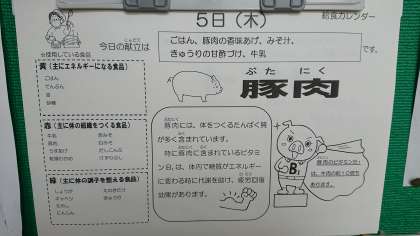 給食カレンダー
5日(木)
今日の献立は
ごはん、豚肉の香味あげ、みそ汁、
きゅうりの甘酢づけ、牛乳
です。
☆使用している食品
黄(主にエネルギーになる食品)
ごはん
でんぷん
油
砂糖
赤(主に体の組織をつくる食品)
牛乳
豚肉
緑(主に体の調子を整える食品)
しょうが
キャベツ
にんじん
ぶた にく
豚肉
豚肉には、体をつくるたんぱく質
が多く含まれています。
特に豚肉に含まれているビタミ
ンB₁は、体内で糖質がエネルギー
に変わる時に代謝を助け、疲労回復
効果があります。
B₁
豚肉のビタミンB₁
は、牛肉の約10倍も
あります。